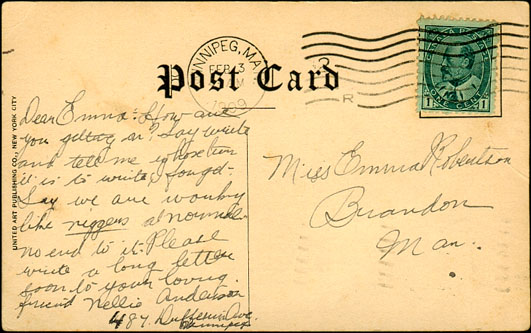 WINNIPEG, MAN
FEB 3
PM
1909
Post Card
CANADA POSTAGE
1 ONE CENT 1
R
UNITED ART PUBLISHING CO., NEW YORK CITY
Dear Emma: How are
you getting on? Say write
and tell me whose turn
it is to write, I forget.
Say we are working
like niggers at normal
no end to it. Please
write a long letter
soon to your loving
friend Nellie Anderson
487 Dufferin Ave.
Winnipeg
Miss Emma Robertson
Brandon
Man.